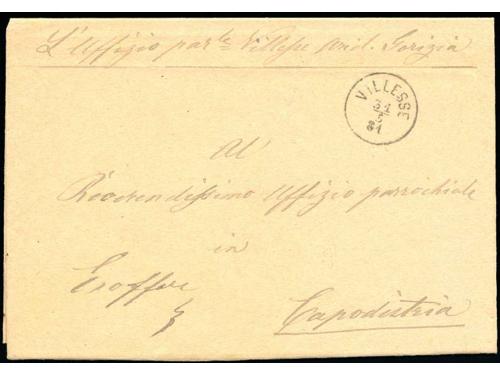 L'Uffizio par.le Villesse Arcid. Gorizia
VILLESSE
31
3
81
Al
Reverendissimo Uffizio parrochiale
in
Exoffer
Capodistria